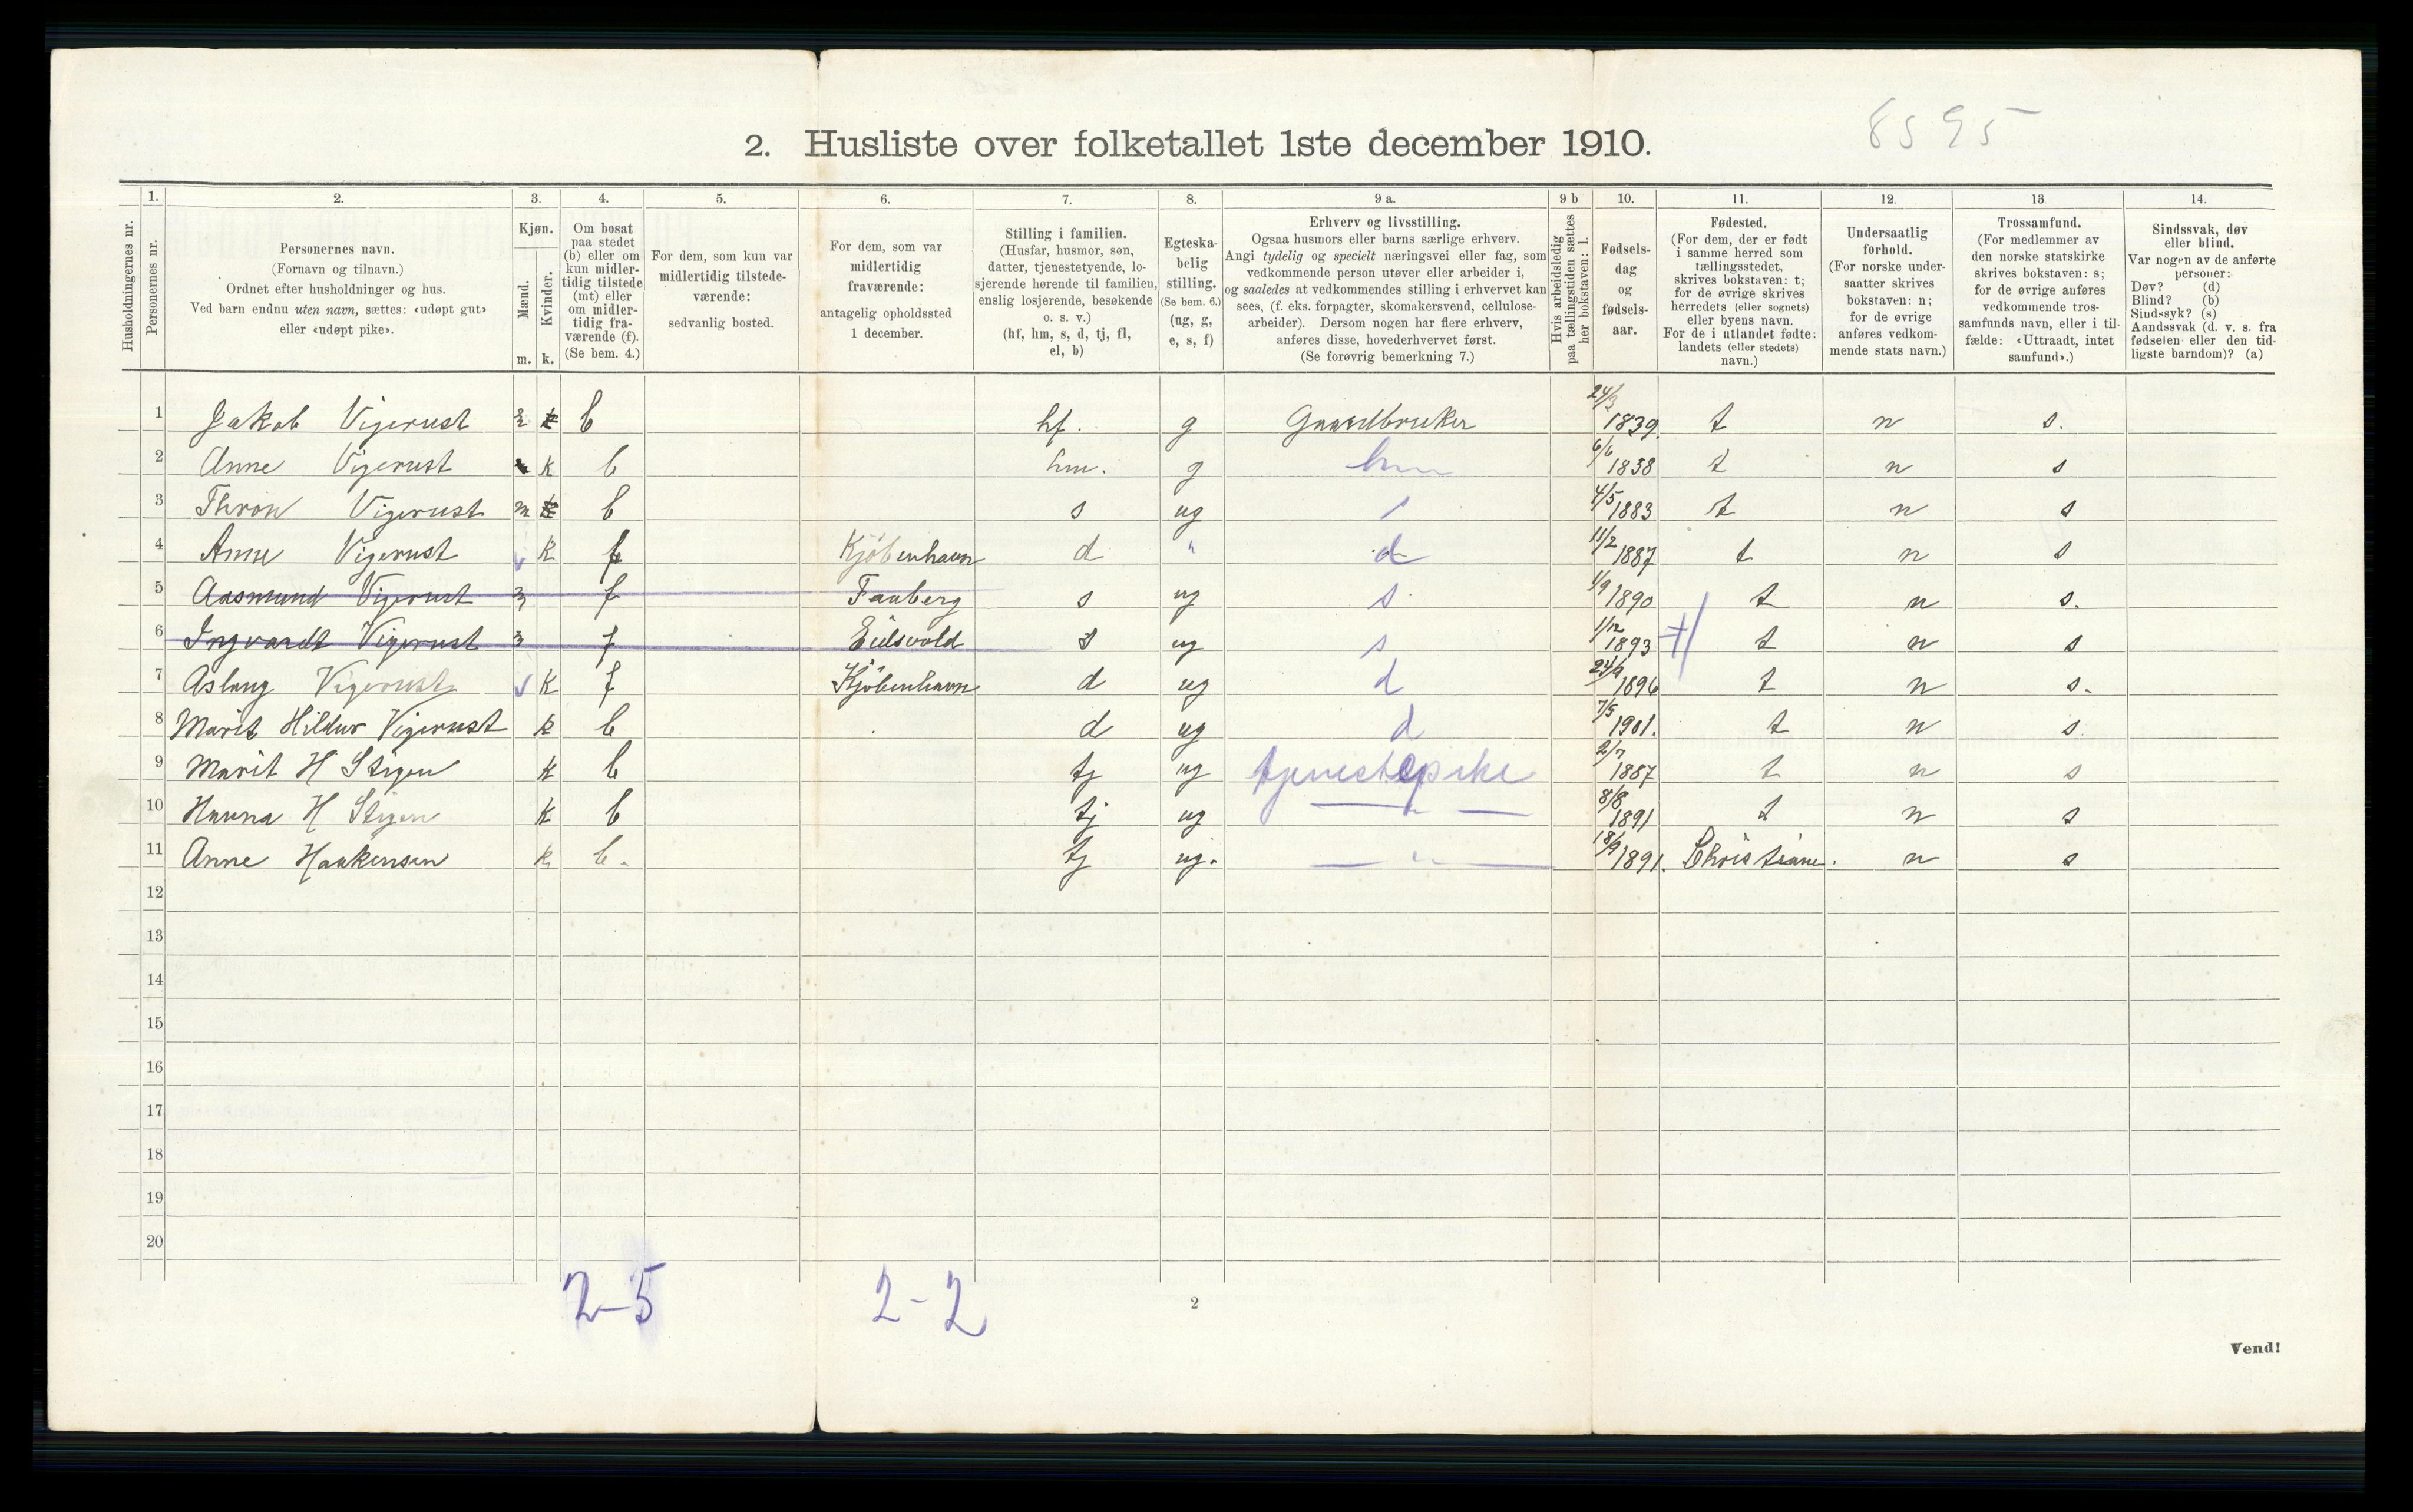 8595
2. Husliste over folketallet 1ste december 1910.
Husholdningernes nr.
1. Personernes nr.
2. Personernes navn. (Fornavn og tilnavn.) Ordnet efter husholdninger og hus. Ved barn endnu uten navn, sættes: «udøpt gut» eller «udøpt pike».
3. Kjøn. Mænd. m. Kvinder. k.
4. Om bosat paa stedet (b) eller om kun midler-tidig tilstede (mt) eller om midler-tidig fra-værende (f). (Se bem. 4.)
5. For dem, som kun var midlertidig tilstede-værende: sedvanlig bosted.
6. For dem, som var midlertidig fraværende: antagelig opholdssted 1 december.
7. Stilling i familien. (Husfar, husmor, søn, datter, tjenestetyende, lo-sjerende hørende til familien, enslig losjerende, besøkende o. s. v.) (hf, hm, s, d, tj, fl, el, b)
8. Egteska-belig stilling. (Se bem. 6.) (ug, g, e, s, f)
9 a. Erhverv og livsstilling. Ogsaa husmors eller barns særlige erhverv. Angi tydelig og specielt næringsvei eller fag, som vedkommende person utøver eller arbeider i, og saaledes at vedkommendes stilling i erhvervet kan sees, (f. eks. forpagter, skomakersvend, cellulose-arbeider). Dersom nogen har flere erhverv, anføres disse, hovederhvervet først. (Se forøvrig bemerkning 7.)
9 b Hvis arbeidsledig paa tællingstiden sættes her bokstaven: l.
10. Fødsels-dag og fødsels-aar.
11. Fødested. (For dem, der er født i samme herred som tællingsstedet, skrives bokstaven: t; for de øvrige skrives herredets (eller sognets) eller byens navn. For de i utlandet fødte: landets (eller stedets) navn.)
12. Undersaatlig forhold. (For norske under-saatter skrives bokstaven: n; for de øvrige anføres vedkom-mende stats navn.)
13. Trossamfund. (For medlemmer av den norske statskirke skrives bokstaven: s; for de øvrige anføres vedkommende tros-samfunds navn, eller i til-fælde: «Uttraadt, intet samfund».)
14. Sindssvak, døv eller blind. Var nogen av de anførte personer: Døv? (d) Blind? (b) Sindssyk? (s) Aandssvak (d. v. s. fra fødselen eller den tid-ligste barndom)? (a)
1 Jakob Vigerust m k b hf. g Gaardbruker 24/3 1839. t n s.
2 Anne Vigerust k b hm. g hm 6/6 1838 t n s
3 Thron Vigerust m k b s ug s 4/5 1883 t n s
4 Anne Vigerust k f Kjöbenhavn d " d 11/2 1887 t n s
5 Aasmund Vigerust m f Faaberg s ug s 1/9 1890 t n s.
6 Ingvardt Vigerust m f Eidsvold s ug s 1/12 1893 t n s
7 Aslaug Vigerust k f Kjöbenhavn d ug d 24/9 1896 t n s.
8 Marit Hildur Vigerust k b d ug d 7/5 1901. t n s.
9 Marit H Stigen k b tj ug tjenestepike 2/7 1887 t n s
10 Hanna H Stigen k b tj ug — " — 8/8 1891 t n s
11 Anne Haakensen k b. tj ug. — " — 18/9 1891. Christiane. n s
12
13
14
15
16
17
18
19
20
2-5 2-2
2
Vend!